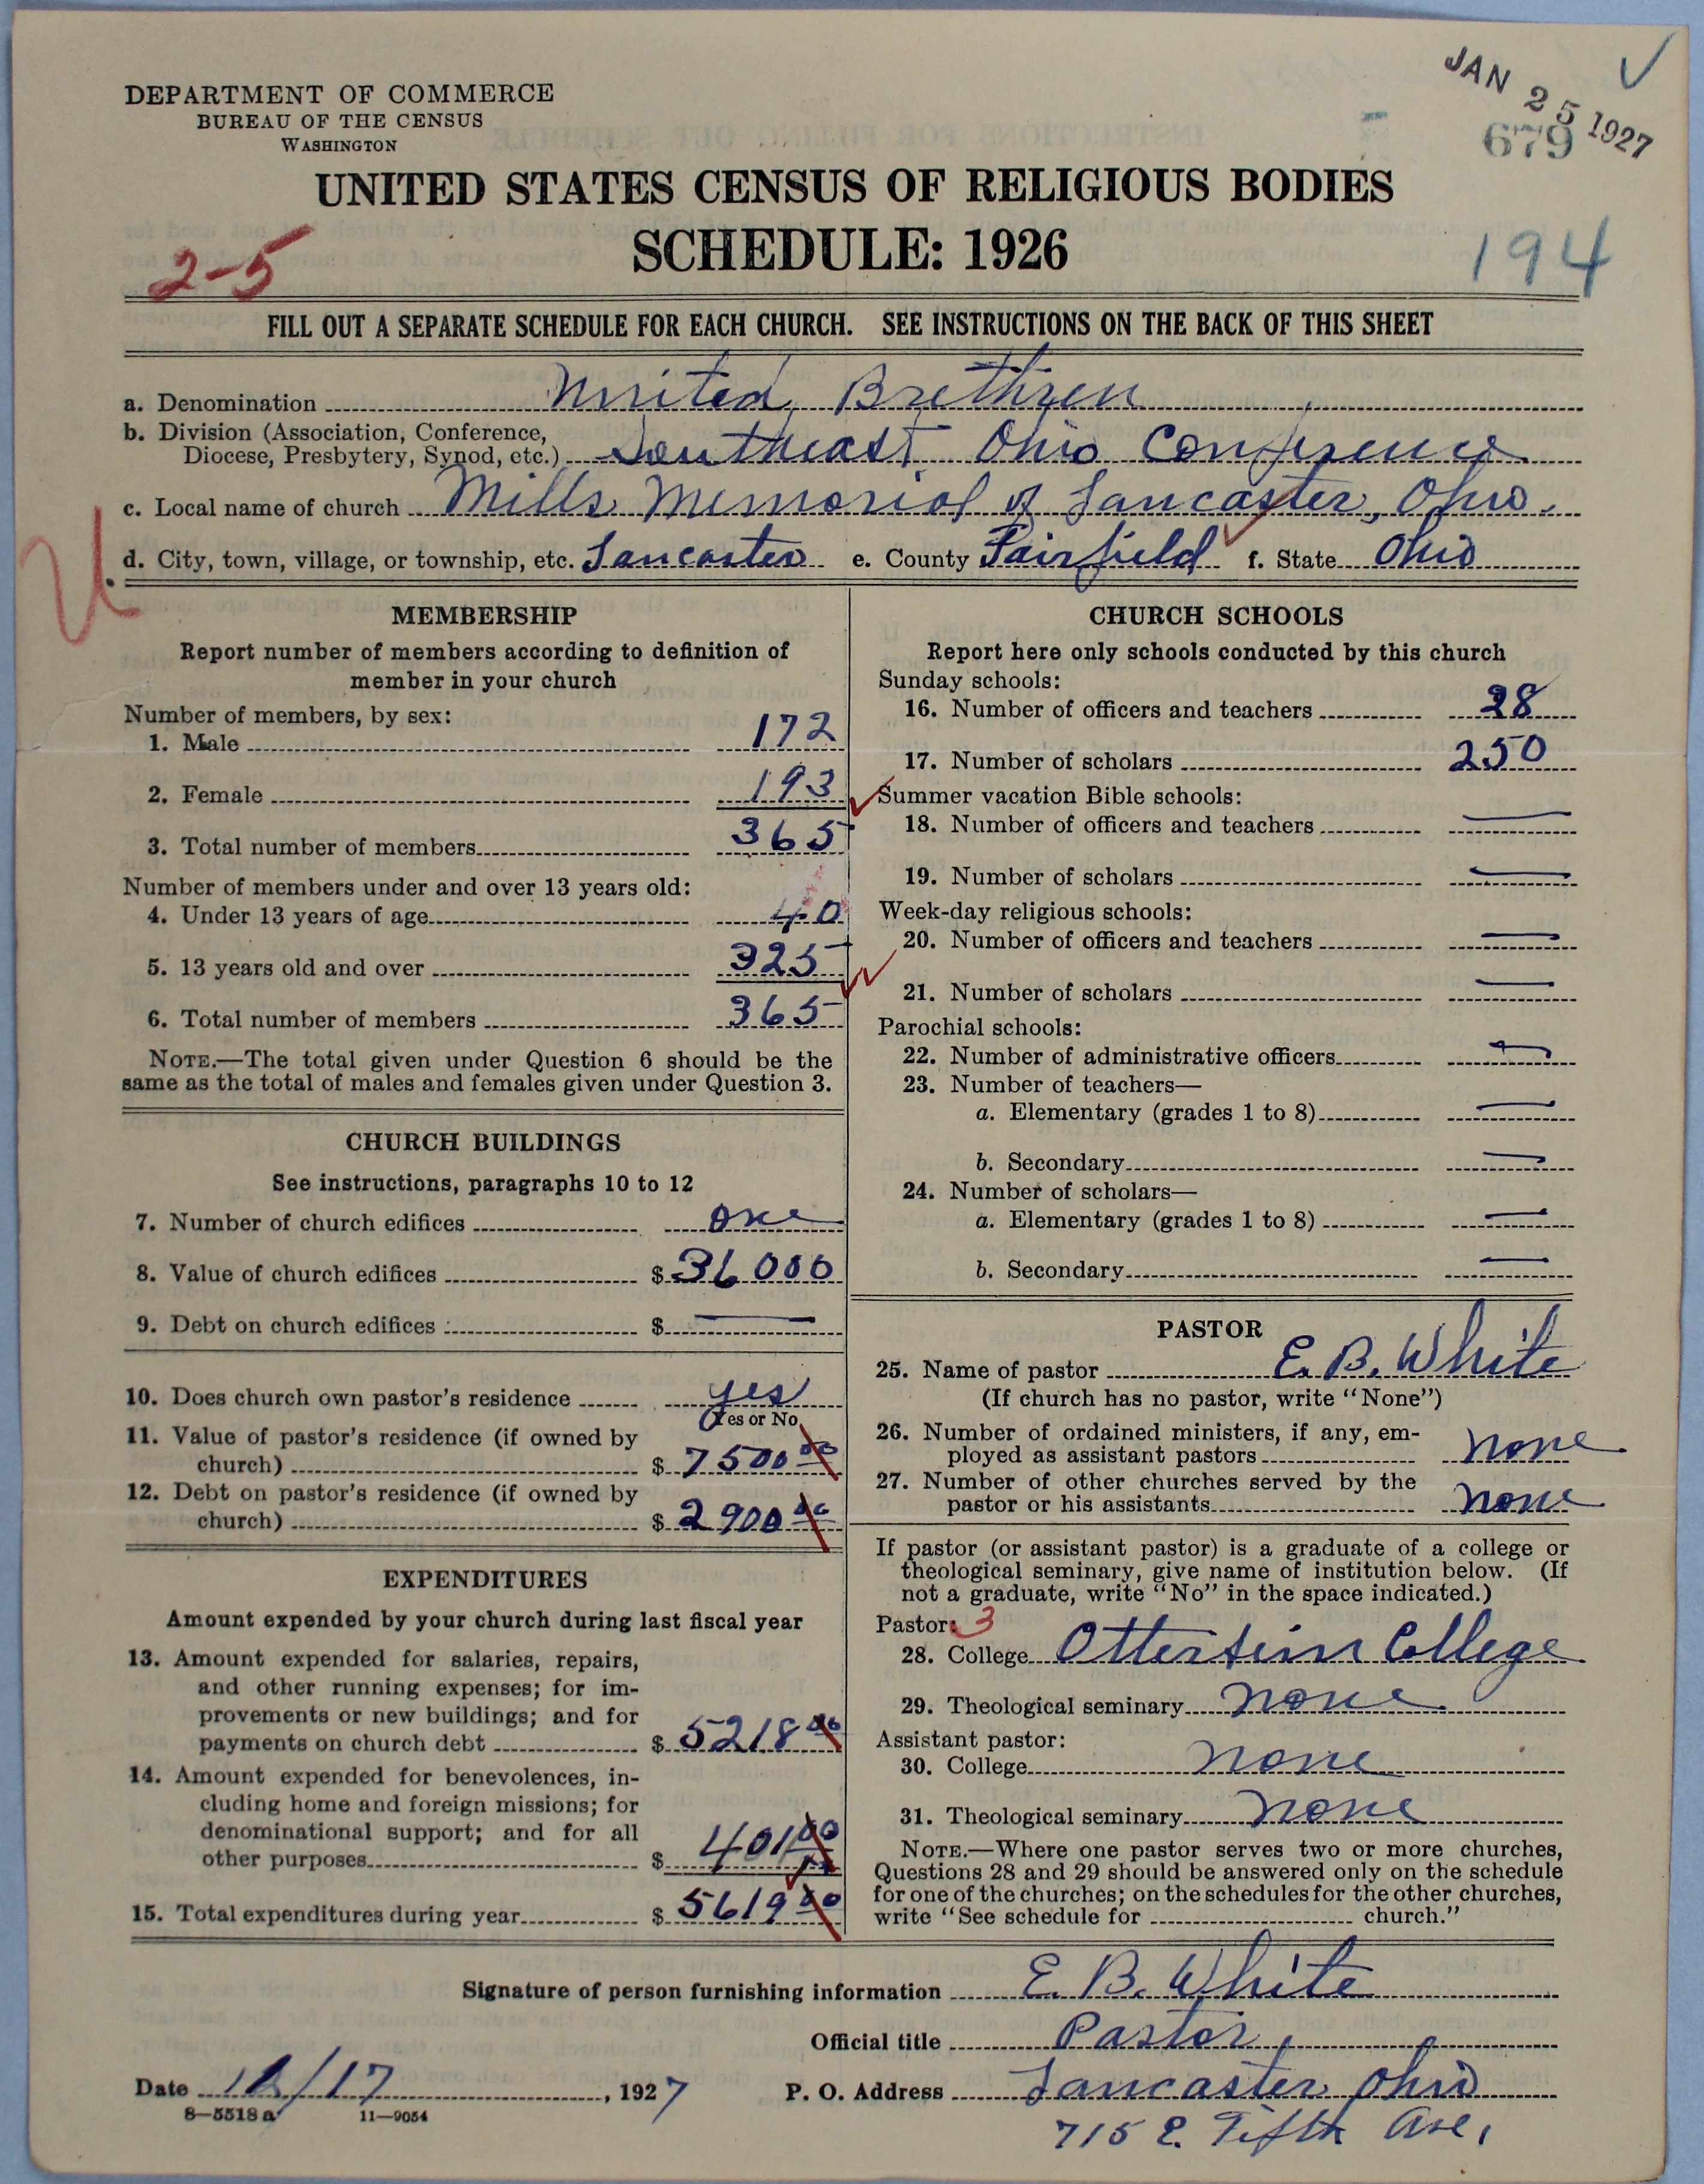 JAN 25 1927
679
DEPARTMENT OF COMMERCE
BUREAU OF THE CENSUS
WASHINGTON
UNITED STATES CENSUS OF RELIGIOUS BODIES
SCHEDULE: 1926
2-5
194
FILL OUT A SEPARATE SCHEDULE FOR EACH CHURCH. SEE INSTRUCTIONS ON THE BACK OF THIS SHEET
a. Denomination United Brethren
b. Division (Association, Conference,
Diocese, Presbytery, Synod, etc.) Southeast Ohio Conference
c. Local name of church Mills Memorial of Lancaster, Ohio.
d. City, town, village, or township, etc. Lancaster e. County Fairfield f. State Ohio
U
MEMBERSHIP
Report number of members according to definition of
member in your church
Number of members, by sex:
1. Male 172
2. Female 193
3. Total number of members 365
Number of members under and over 13 years old:
4. Under 13 years of age 40
5. 13 years old and over 325
6. Total number of members 365
NOTE.—The total given under Question 6 should be the
same as the total of males and females given under Question 3.
CHURCH BUILDINGS
See instructions, paragraphs 10 to 12
7. Number of church edifices one
8. Value of church edifices $ 36000
9. Debt on church edifices $ —
10. Does church own pastor's residence yes
(Yes or No)
11. Value of pastor's residence (if owned by
church) $ 7500 00
12. Debt on pastor's residence (if owned by
church) $ 2900 00
EXPENDITURES
Amount expended by your church during last fiscal year
13. Amount expended for salaries, repairs,
and other running expenses; for im-
provements or new buildings; and for
payments on church debt $ 5218 00
14. Amount expended for benevolences, in-
cluding home and foreign missions; for
denominational support; and for all
other purposes $ 401 00
15. Total expenditures during year $ 5619 00
CHURCH SCHOOLS
Report here only schools conducted by this church
Sunday schools:
16. Number of officers and teachers 28
17. Number of scholars 250
Summer vacation Bible schools:
18. Number of officers and teachers —
19. Number of scholars —
Week-day religious schools:
20. Number of officers and teachers —
21. Number of scholars —
Parochial schools:
22. Number of administrative officers —
23. Number of teachers—
a. Elementary (grades 1 to 8) —
b. Secondary —
24. Number of scholars—
a. Elementary (grades 1 to 8) —
b. Secondary —
PASTOR
25. Name of pastor E. B. White
(If church has no pastor, write "None")
26. Number of ordained ministers, if any, em-
ployed as assistant pastors none
27. Number of other churches served by the
pastor or his assistants none
If pastor (or assistant pastor) is a graduate of a college or
theological seminary, give name of institution below. (If
not a graduate, write "No" in the space indicated.)
Pastor: 3
28. College Otterbein College
29. Theological seminary none
Assistant pastor:
30. College none
31. Theological seminary none
NOTE.—Where one pastor serves two or more churches,
Questions 28 and 29 should be answered only on the schedule
for one of the churches; on the schedules for the other churches,
write "See schedule for church."
Signature of person furnishing information E. B. White
Official title Pastor
Date /17, 1927 P. O. Address Lancaster Ohio
8—5518a 11—9054
715 E. Fifth Ave,